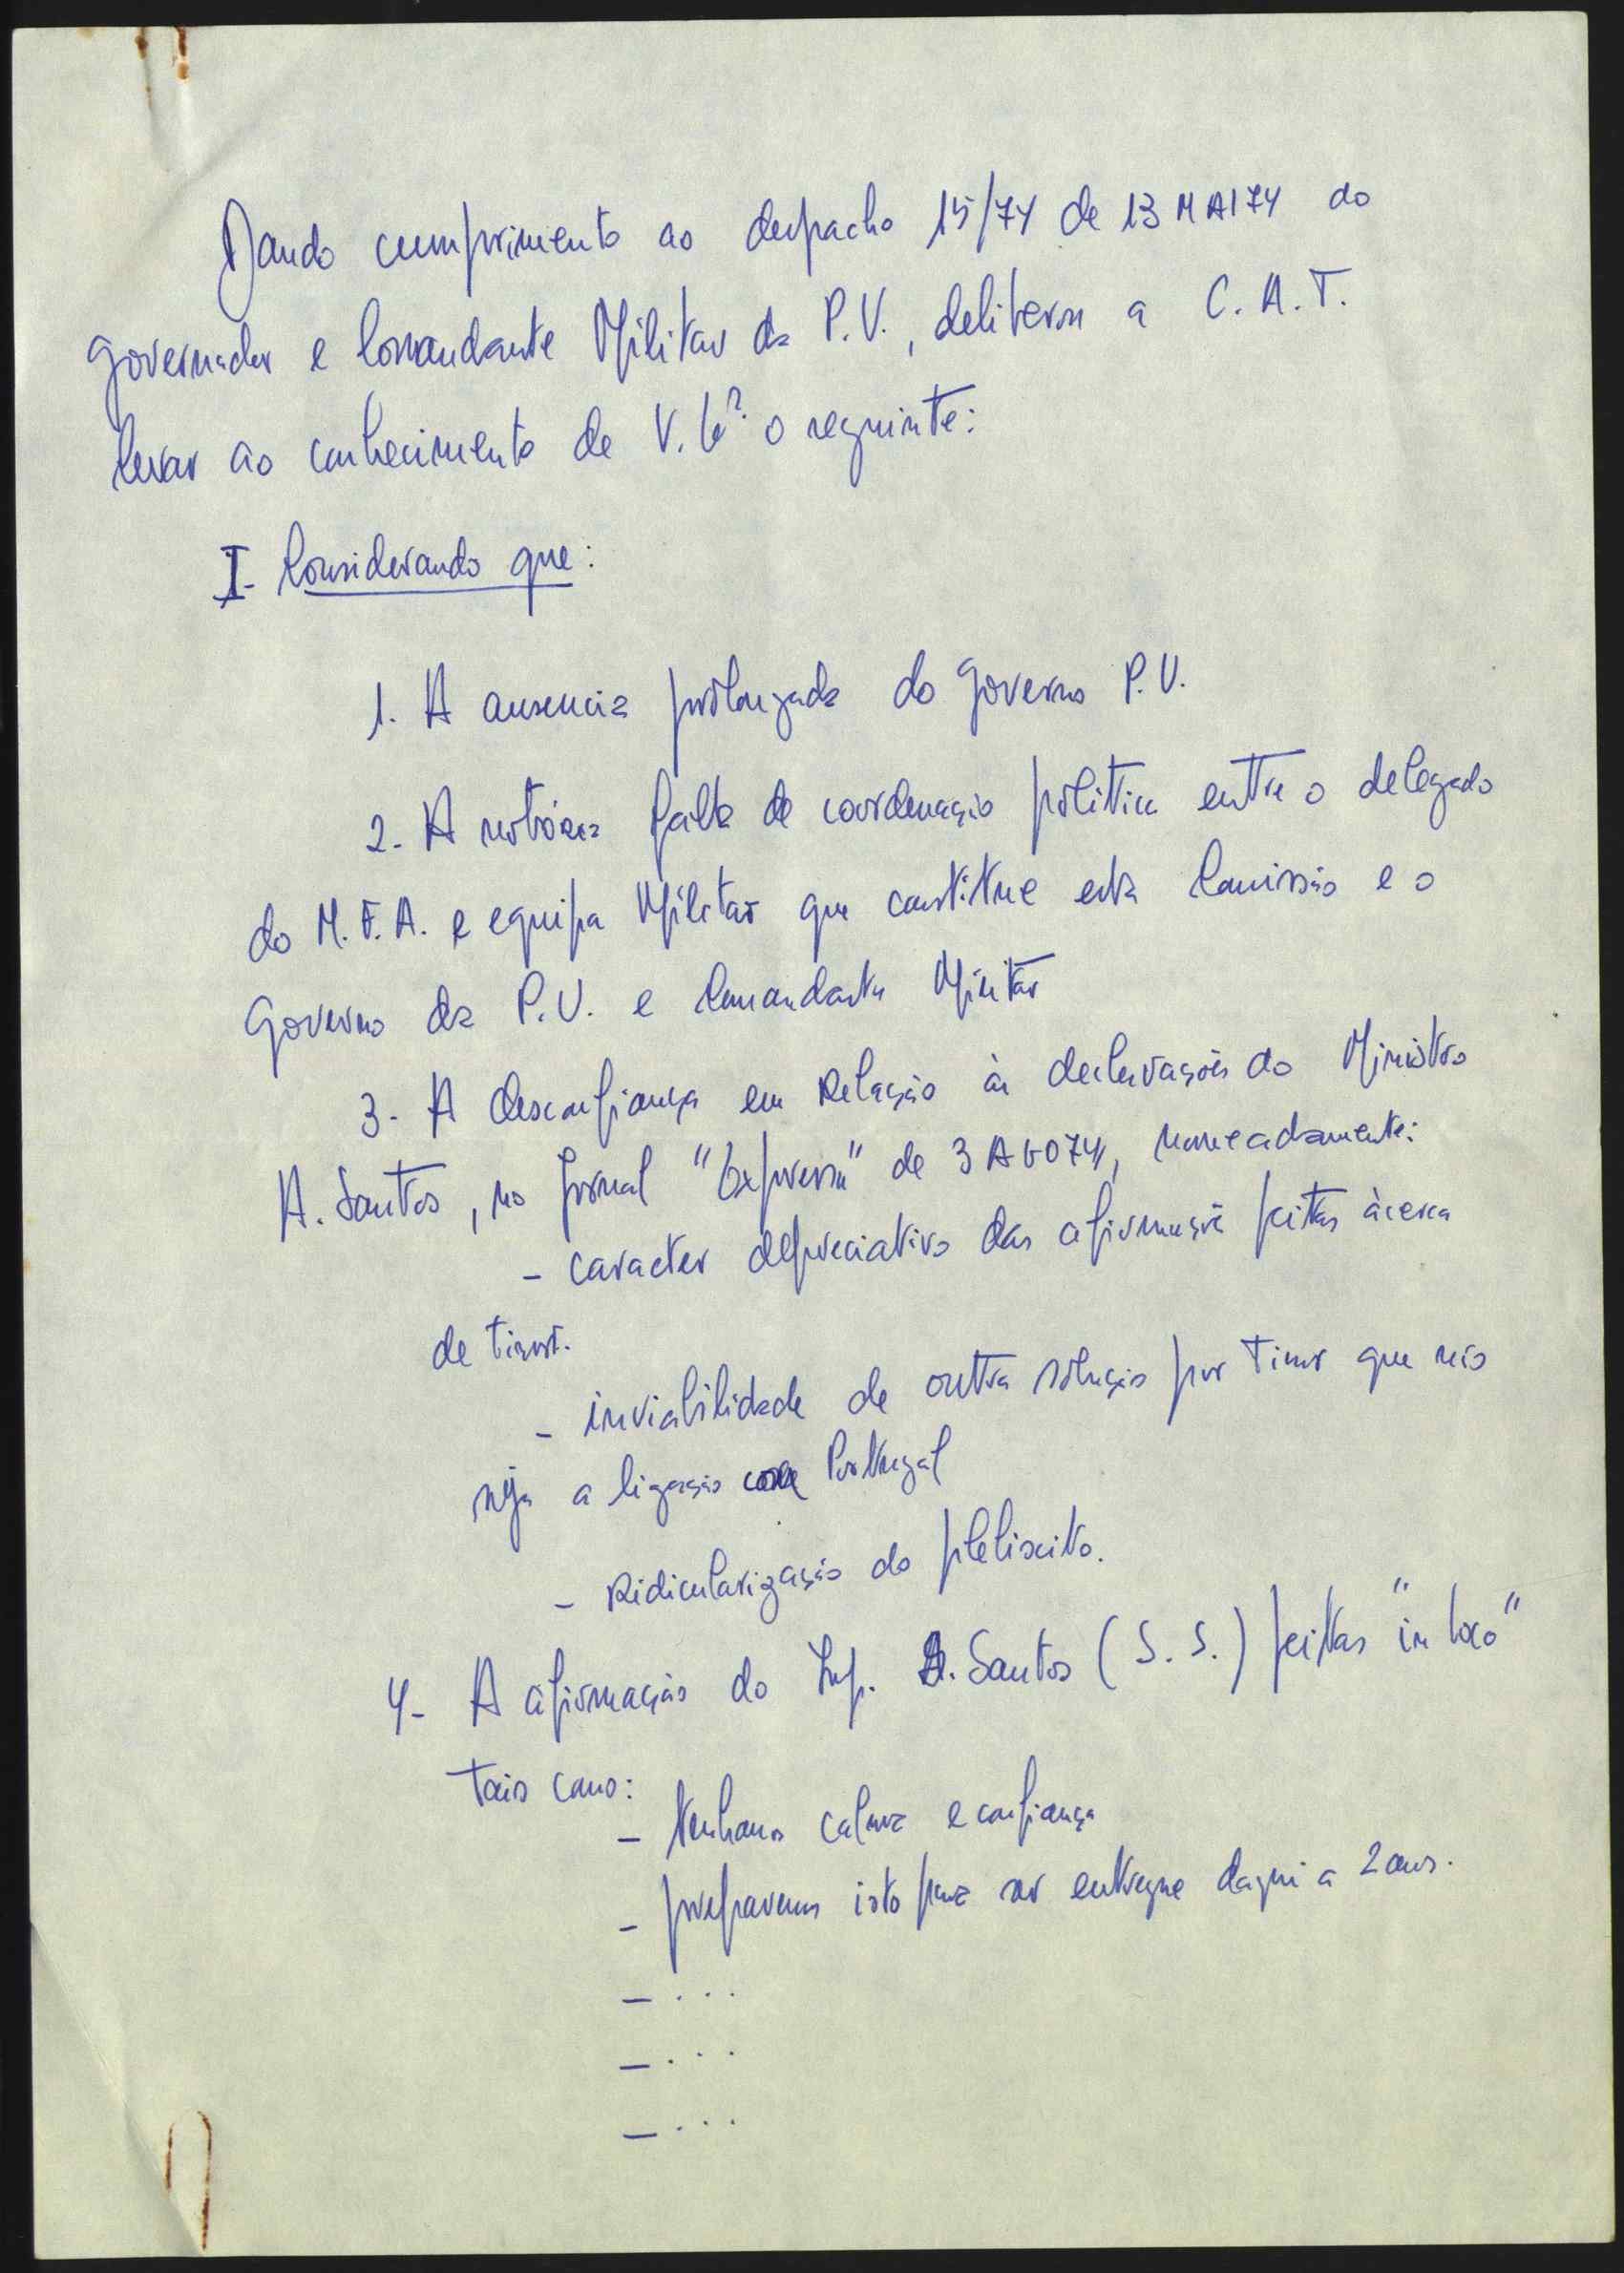 Dando cumprimento ao despacho 15/74 de 13 MAI74 do
Governador e Comandante Militar da P.V., deliberou a C.A.T.
levar ao conhecimento de V. Exª o seguinte:
I- Considerando que:
1. A ausencia prolongada do Governo P.V.
2. A notória falta de coordenação politica entre o delegado
do M.F.A. e equipa Militar que constitue esta Comissão e o
Governo da P.V. e Comandante Militar
3- A desconfiança em Relação às declarações do Ministro
A. Santos, no Jornal "Expresso" de 3 AGO74, nomeadamente:
- caracter depreciativo das afirmações feitas àcerca
de timor.
- inviabilidade de outra solução por Timor que não
seja a ligação com Portugal
- Ridicularização do plebiscito.
4- A afirmação do Insp. A. Santos (S.S.) feitas "in loco"
tais como:
- tenhamos calma e confiança
- preparemos isto para ser entregue daqui a 2 anos.
- ...
- ...
- ...